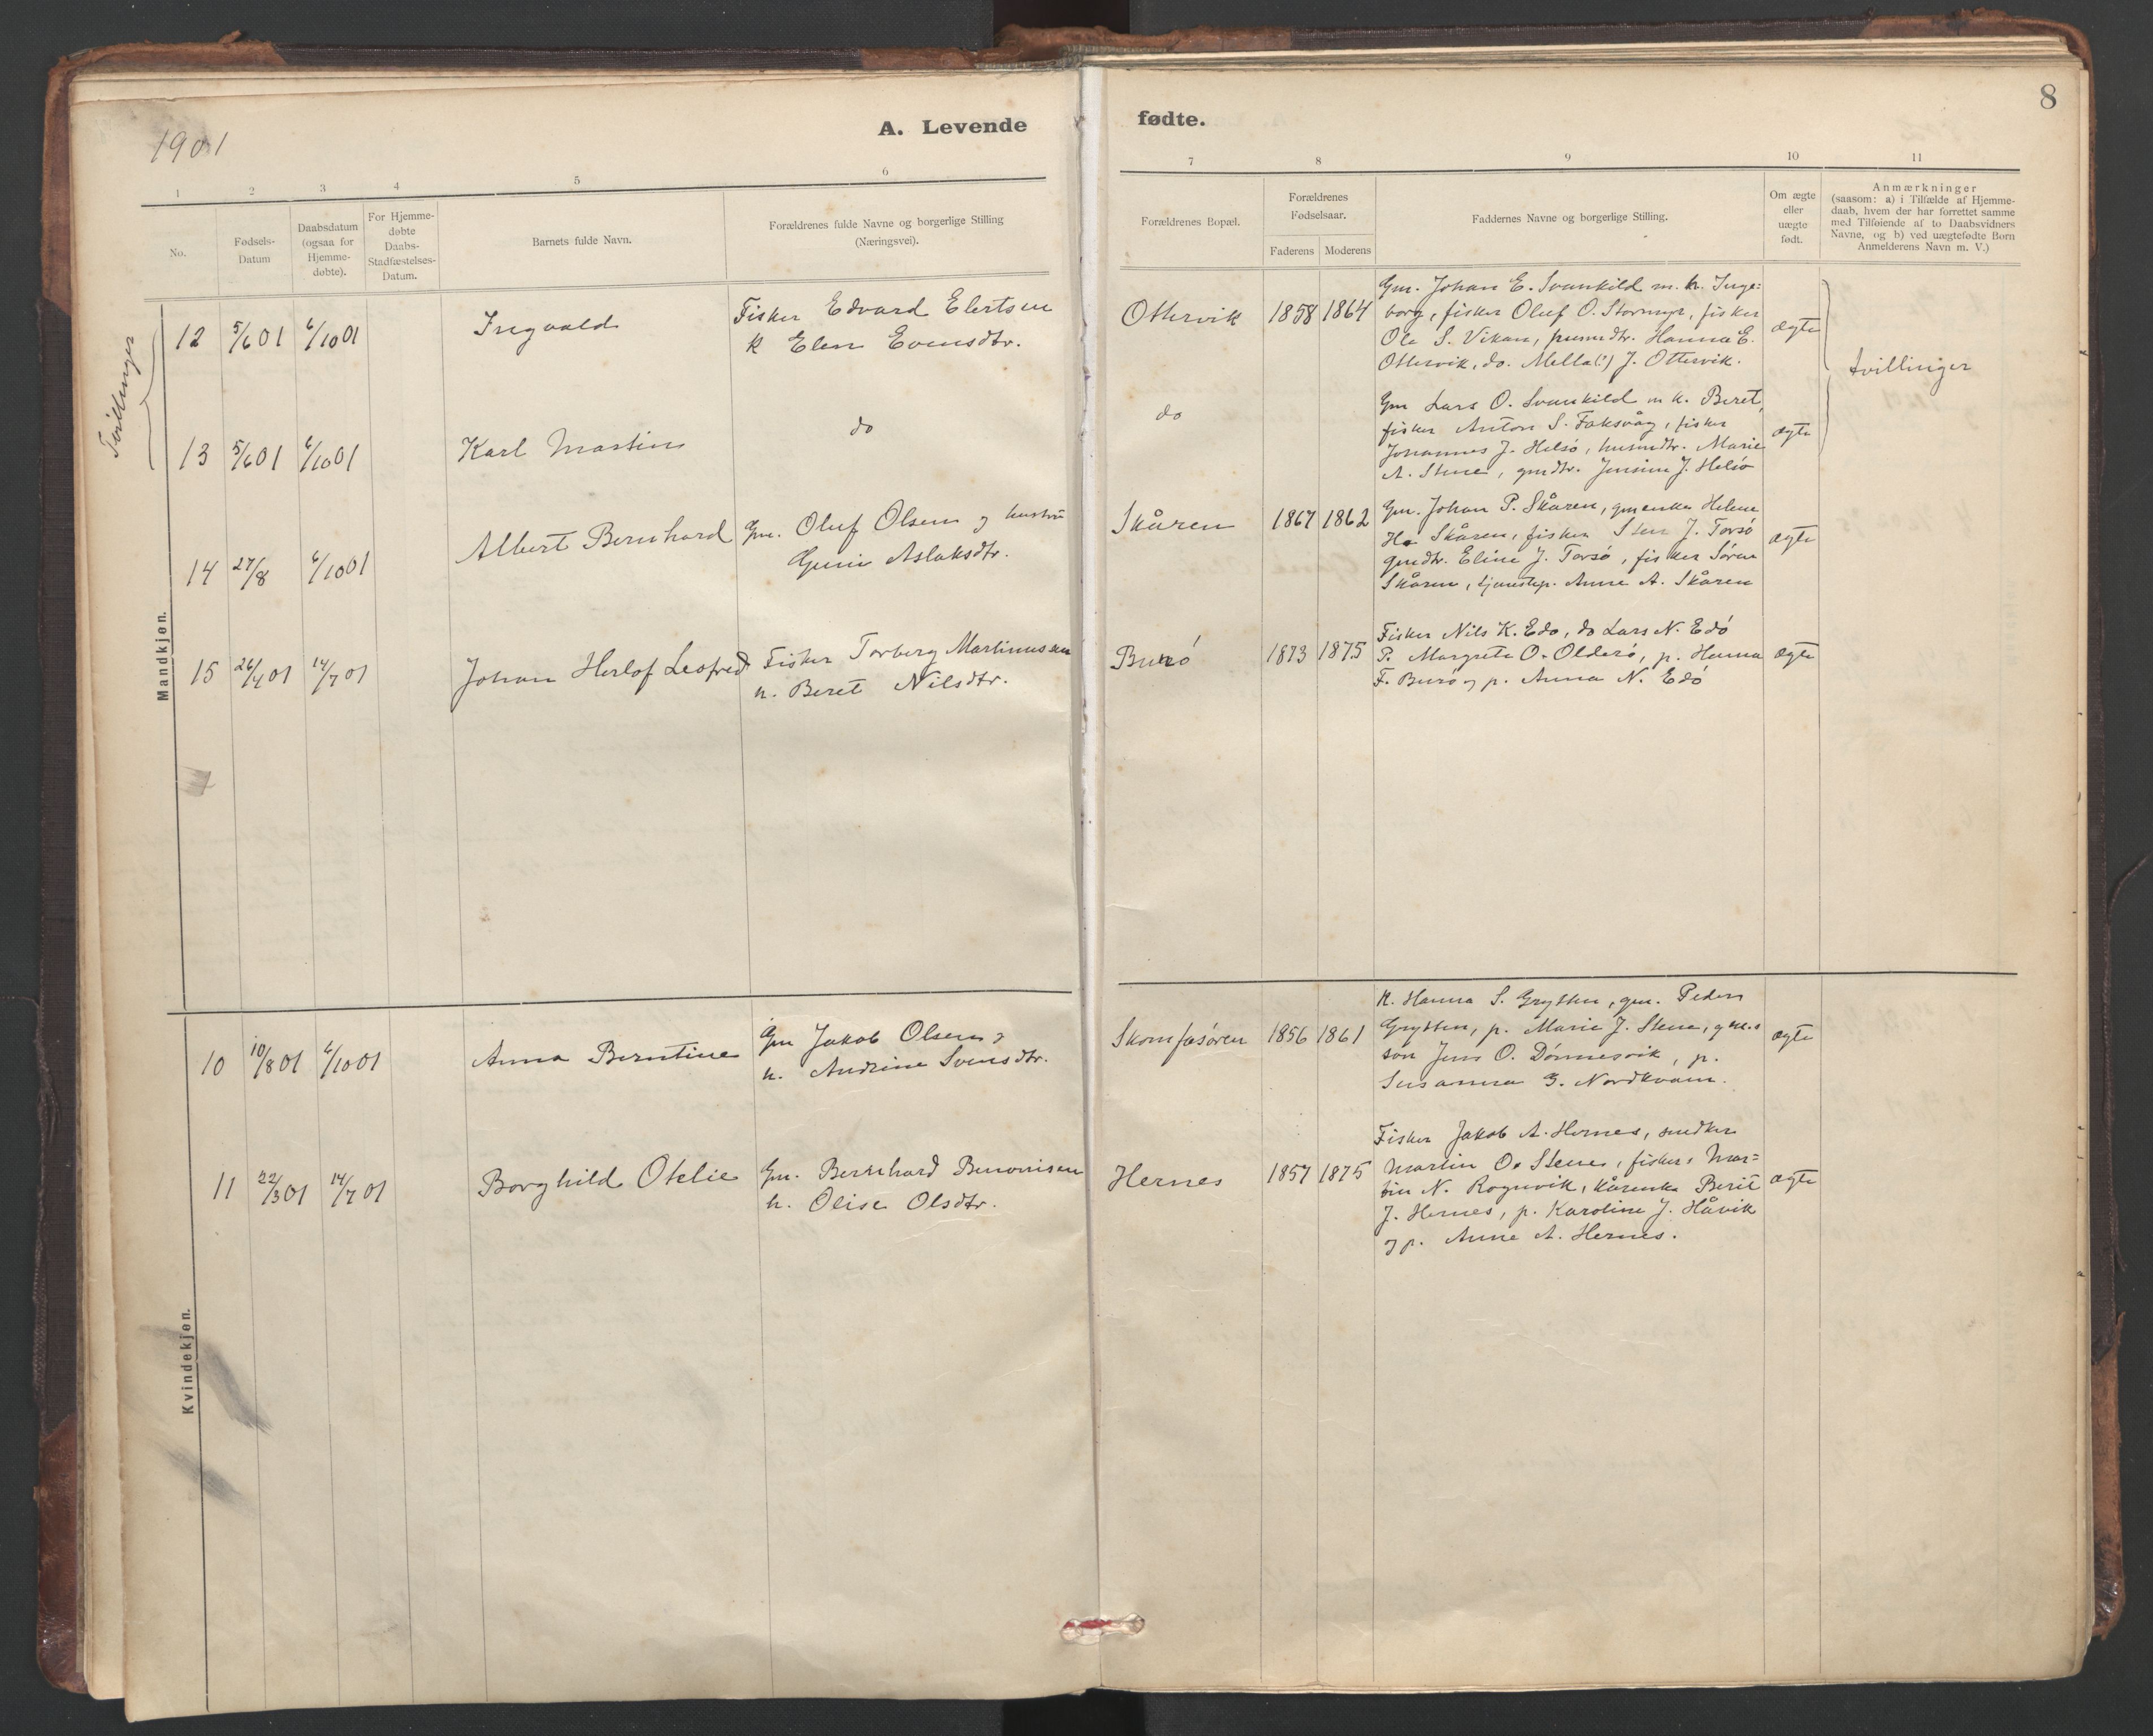 1901
A. Levende
1 2 3 4 5 6
No.
Fødsels-
Datum
Daabsdatum
(ogsaa for
Hjemme-
døbte).
For Hjemme-
døbte
Daabs-
Stadfæstelses-
Datum.
Barnets fulde Navn.
Forældrenes fulde Navne og borgerlige Stilling
(Næringsvei).
Mandkjøn.
Tvillinger
12 5/6 01 6/10 01 Ingvald Fisker Edvard Elertsen
k Elen Evensdtr.
13 5/6 01 6/10 01 Karl Martin do
14 27/8 6/10 01 Albert Bernhard Gm. Oluf Olsen og hustru
Guni Aslaksdtr.
15 26/4 01 14/7 01 Johan Herlof Leofred Fisker Torberg Martinussen
h. Beret Nilsdtr.
Kvindekjøn.
10 10/8 01 6/10 01 Anna Berntine Gm Jakob Olsen og
h. Andrine Svensdtr.
11 22/3 01 14/7 01 Borghild Otelie Gm. Bernhard
h. Olise Olsdtr.
8
fødte.
7 8 9 10 11
Forældrenes Bopæl.
Forældrenes
Fødselsaar.
Faderens Moderens
Faddernes Navne og borgerlige Stilling.
Om ægte
eller
uægte
født.
Anmærkninger
(saasom: a) i Tilfælde af Hjemme-
daab, hvem der har forrettet samme
med Tilføiende af to Daabsvidners
Navne, og b) ved uægtefødte Børn
Anmelderens Navn m. V.)
Ottervik 1858 1864 Gm. Johan E. Svankild m. h. Inge=
borg, fisker Oluf O. Stormyr, fisker
Ole S. Vikan, Hanna E.
Ottervik, do. Mella(!) J. Ottervik.
ægte
tvillinger
do Gm Lars O. Svankild m h. Beret,
fisker Anton S. Faksvåg, fisker
Johannes J. Helsø, husmdtr. Marie
A. Stene, gmdtr. Jensine J. Helsø
ægte
Skåren 1867 1862 Gm. Johan P. Skåren, gmenke Helene
H. Skåren, fisker Sten J. Torsø
gmdtr. Eline J. Torsø, fisker Søren
Skåren, tjenestep. Anne A. Skåren
ægte
Burø 1873 1875 Fisker Nils K. Edø, do Lars N. Edø
P. Margrete O. Olderø, p. Hanna
F. Burø og p. Anna N. Edø
ægte
Skomfasøren 1856 1861 K. Hanna S. Grytten, gm. Peder
Grytten, p. Marie J. Stene, gm.s
søn Jens O. Dønnesvik, p.
Susanna G. Nordkvam.
ægte
Hernes 1857 1875 Fisker Jakob A. Hernes, snedker
Martin O. Stene, fisker Mar=
tin N. Rognvik, kårenke Berit
J. Hernes, p. Karoline J. Håvik
og p. Anne A. Hernes.
ægte